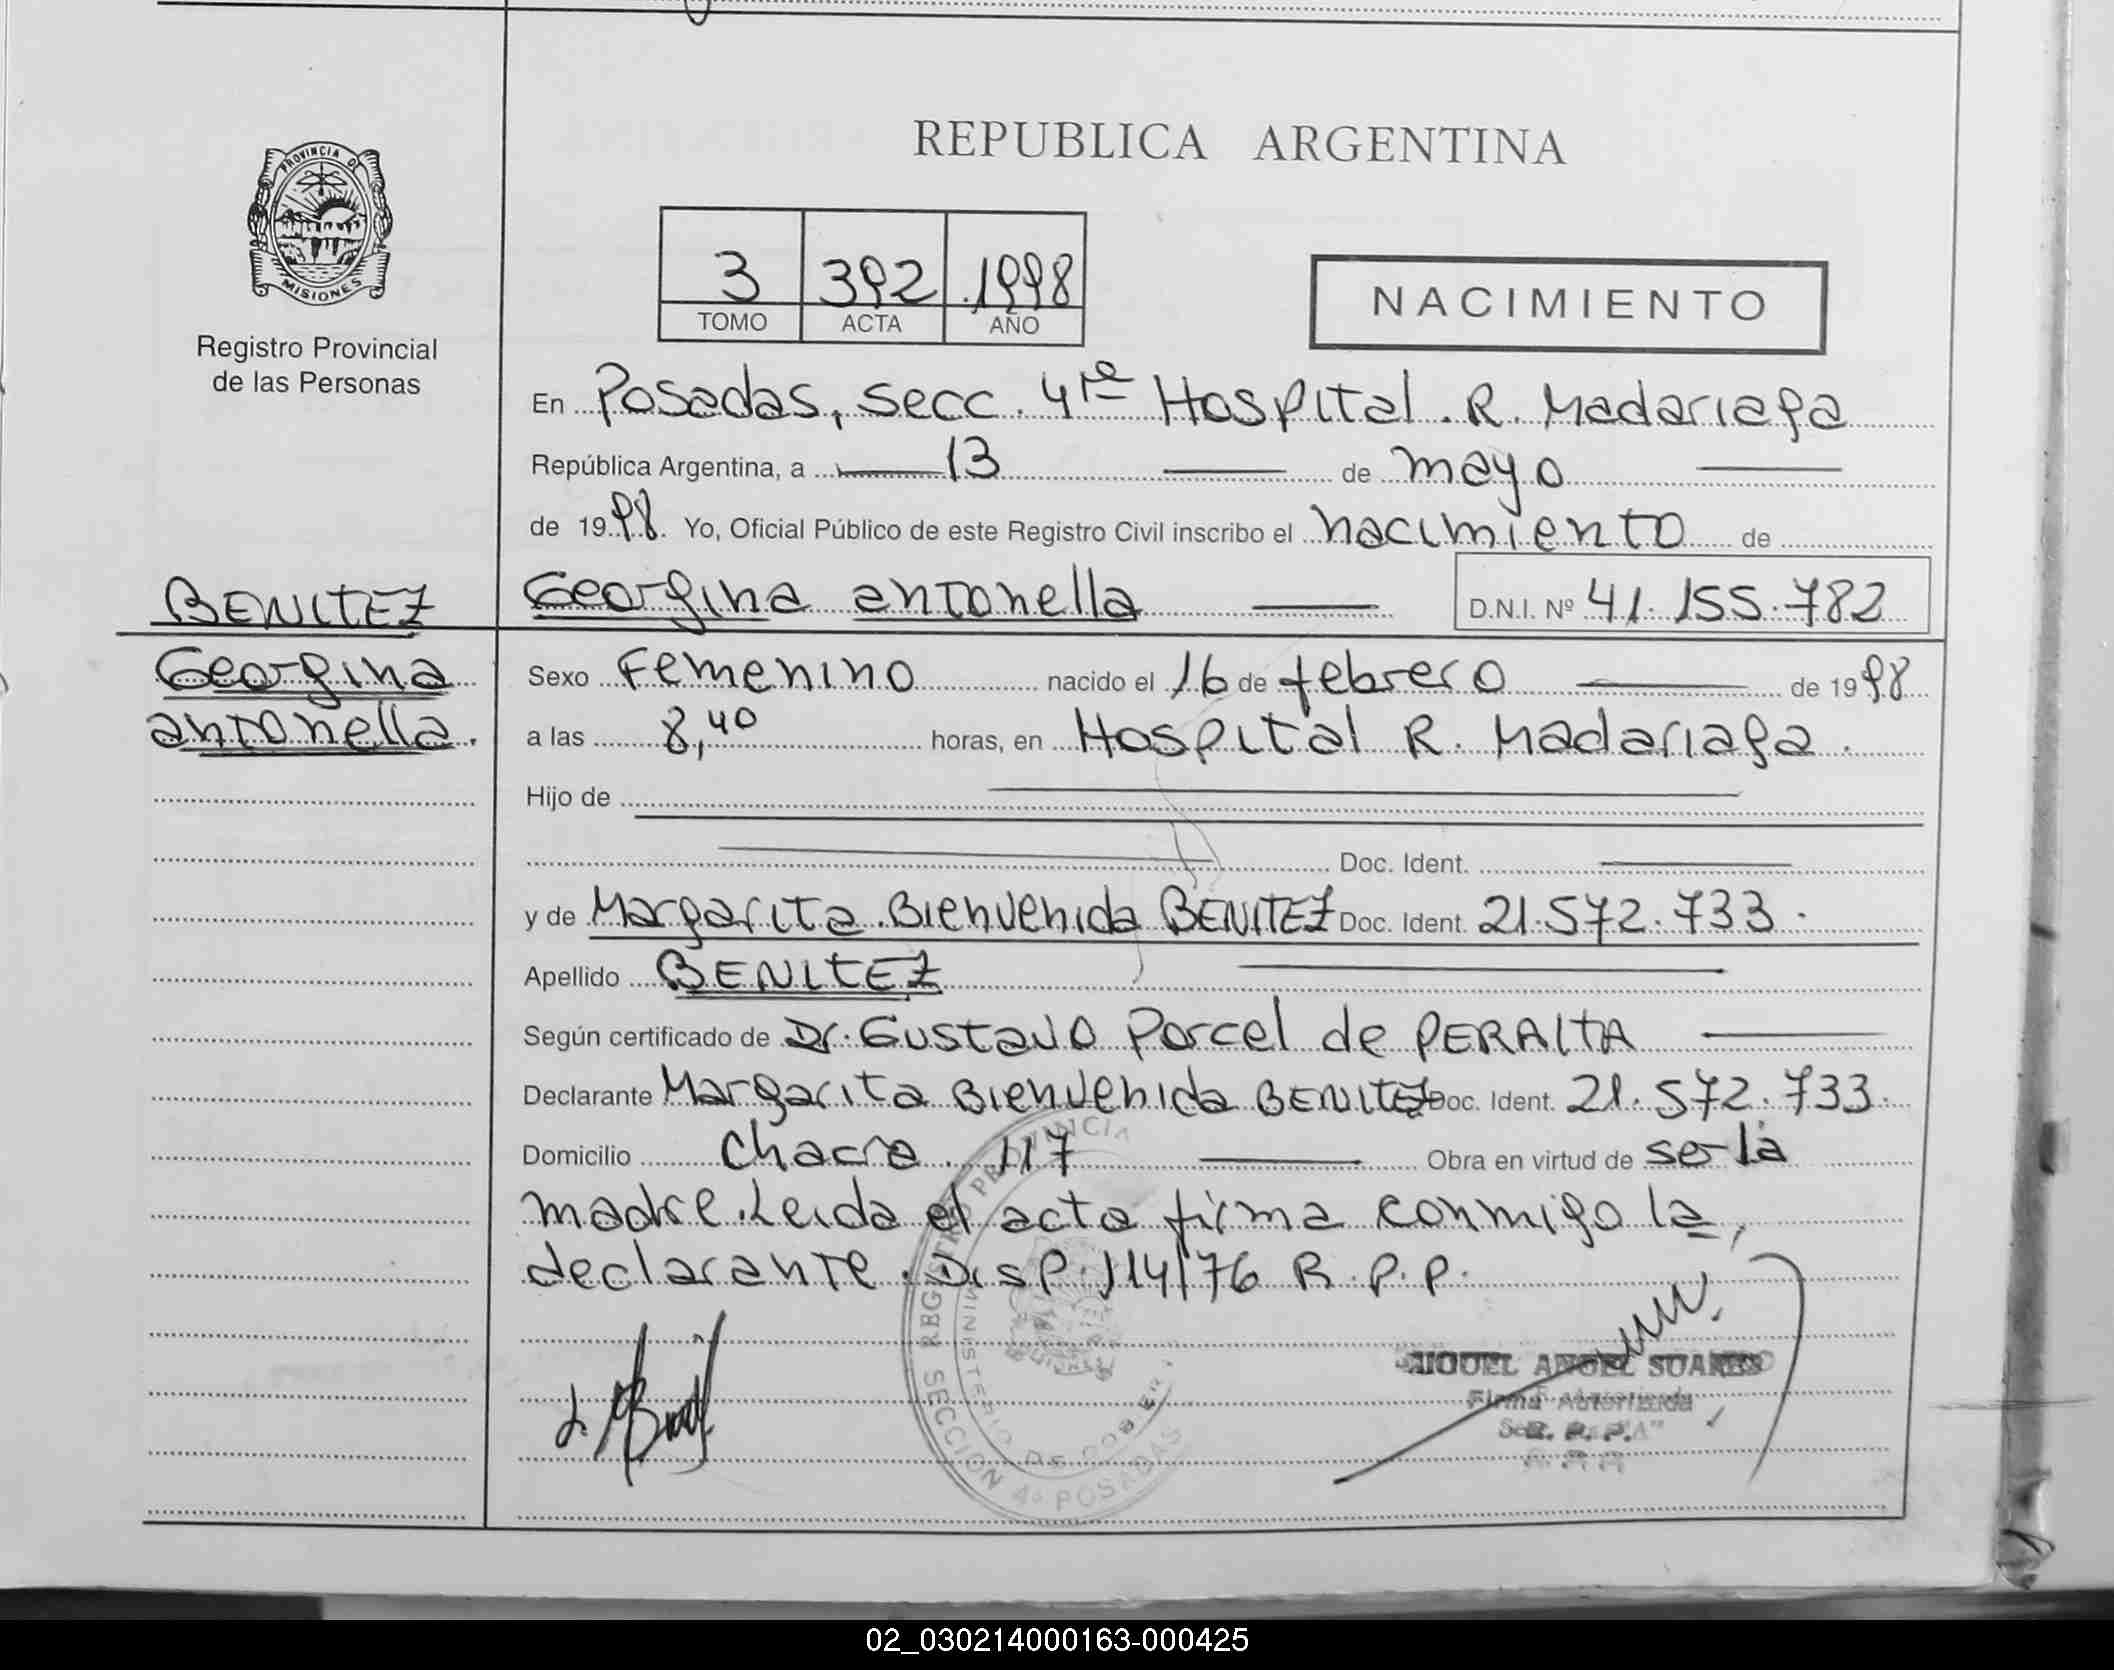 REPUBLICA ARGENTINA
PROVINCIA DE
MISIONES
Registro Provincial
de las Personas
3 392 1998
TOMO ACTA AÑO
NACIMIENTO
En Posadas, secc. 4ta Hospital. R. Madariaga
República Argentina, a 13 de mayo
de 1998. Yo, Oficial Público de este Registro Civil inscribo el nacimiento de
BENITEZ
Georgina antonella D.N.I. Nº 41.155.782
Georgina
antonella.
Sexo Femenino nacido el 16 de febrero de 1998
a las 8,40 horas, en Hospital R. Madariaga.
Hijo de
Doc. Ident.
y de Margarita Bienvenida BENITEZ Doc. Ident. 21.572.733.
Apellido BENITEZ
Según certificado de Dr. Gustavo Porcel de PERALTA
Declarante Margarita Bienvenida BENITEZ Doc. Ident. 21.572.733.
Domicilio Chacra 117 Obra en virtud de ser la
madre. Leida el acta firma conmigo la,
declarante. Disp. 114/76 R.P.P.
REGISTRO PROVINCIA
MINISTERIO DE GOBIER
SECCION 4º POSADAS
MIGUEL ANGEL SUAREZ
Firma Autorizada
R. P. P.
02_030214000163-000425